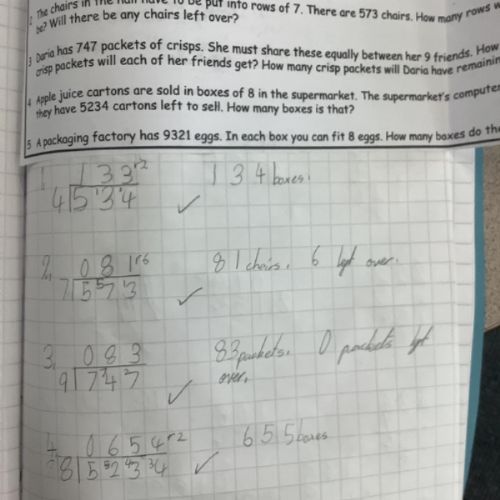 2 The chairs in the hall have to be put into rows of 7. There are 573 chairs. How many rows
be? Will there be any chairs left over?
3 Daria has 747 packets of crisps. She must share these equally between her 9 friends. How
crisp packets will each of her friends get? How many crisp packets will Daria have
4 Apple juice cartons are sold in boxes of 8 in the supermarket. The supermarket's
they have 5234 cartons left to sell. How many boxes is that?
5 A packaging factory has 9321 eggs. In each box you can fit 8 eggs. How many boxes do
1. 133 r2 134 boxes.
4 5 13 14 ✓
2. 081 r6 81 chairs. 6 left over.
7 5 57 13 ✓
3. 083 83 packets. 0 packets left
9 7 74 27 ✓ over.
4. 0654 r2 655 boxes
8 5 52 43 34 ✓